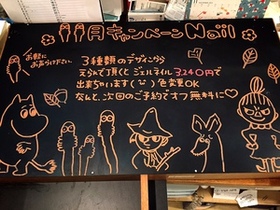 11月キャンペーンNail
お気軽に
お声がけください
3種類のデザインから
えらんで頂くと ジェルネイル3240円で
出来ちゃいます 色変更OK
なんと、次回のご予約でオフ無料に♡